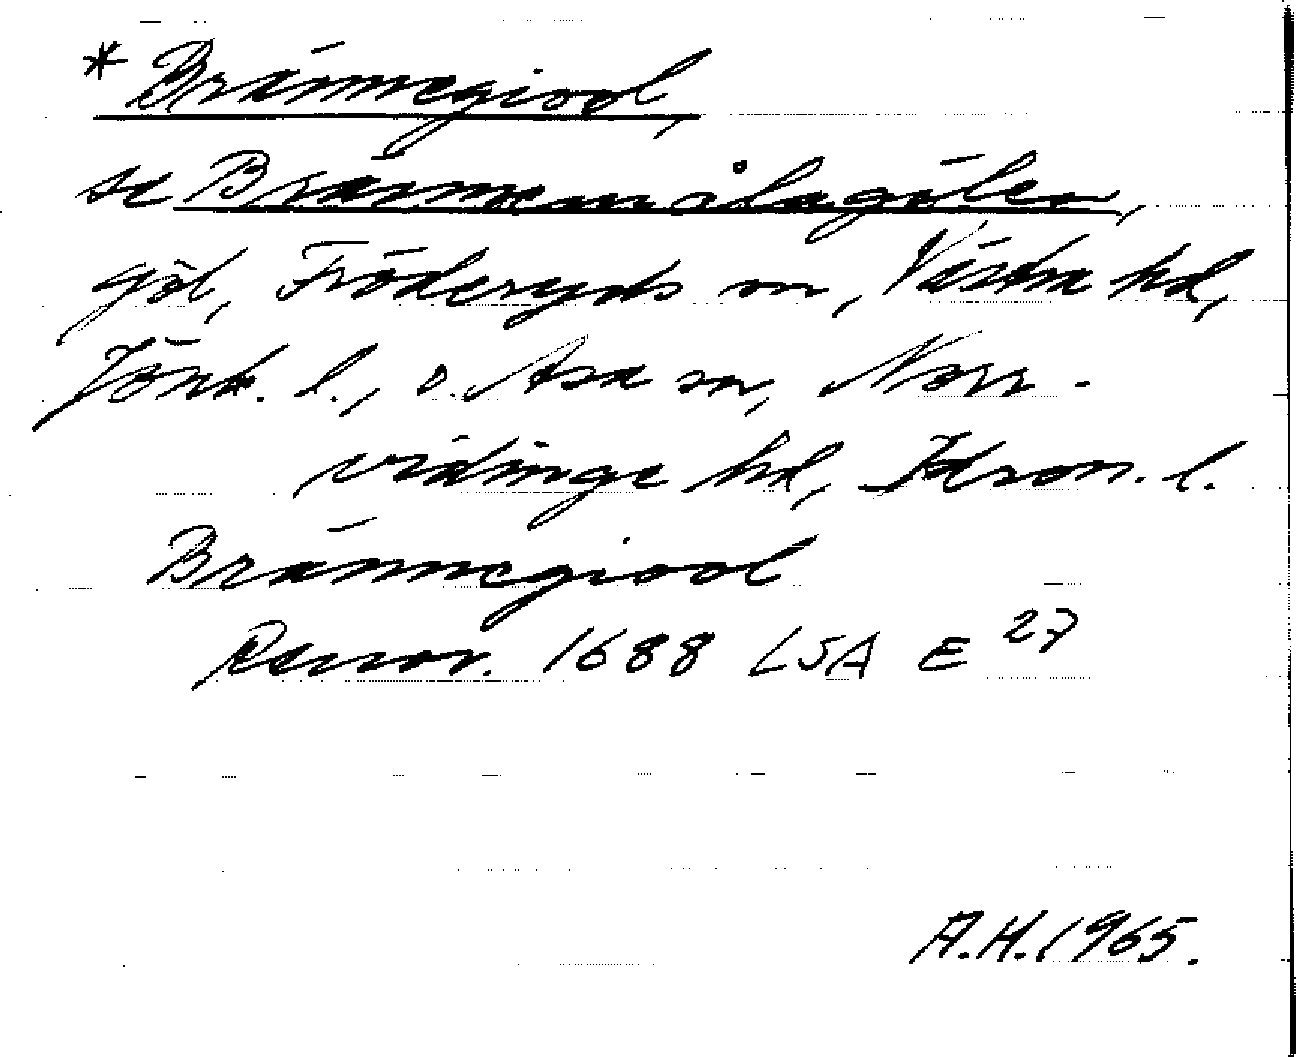 * Brännegiool,
se Brännemålagölen,
göl, Fröderyds sn, Västra hd,
Jönk. l., o. Asa sn, Norr-
vidinge hd, Kron. l.
Brännegiool
Rannor. 1688 LSA E 27
A.H. 1965.